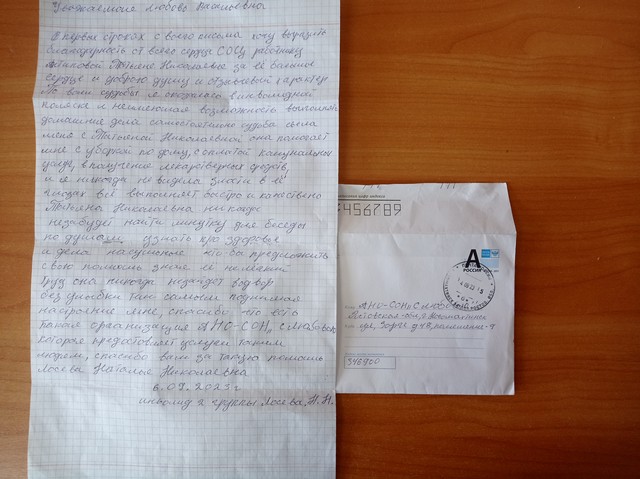 Уважаемая Любовь Васильевна
В первых строках своего письма хочу выразить
благодарность от всего сердца СОСУ работнику
Татьяне Николаевне за её
сердце и доброю душу и отзывчевый характер
По воли судьбы я оказалась в инволидной
коляске и неимеющая возможность выполнять
домашние дела самостоятельно судьба свела
меня с Татьяной Николаевной она помогает
мне с уборкой по дому, с оплатой комунальных
услуг, в получение лекарственных средств,
и я никогда не видела злости в её
глазах всё выполняет быстро и качествено
Татьяна Николаевна никогда
незабудет найти минутку для беседы
по душам узнать про здоровье
и дела насущные что бы предложить
свою помощь зная её нелёгкий
труд она никогда незайдёт во двор
без улыбки тем самым поднимая
настроение мне, спасибо что есть
такая организация АНО-СОН, с любовью,
которая предоставляет услуги таким
людям, спасибо вам за такую помощь
Лосева Наталья Николаевна
6.09.2023 г
инволид 2 группы Лосева.Н.Н.
456789
А
РОССИЯ
АНО-СОН, С любовью
Ростовская обл, г. Новошахтинск
ул, Зорге д 48, помещение-4
346900